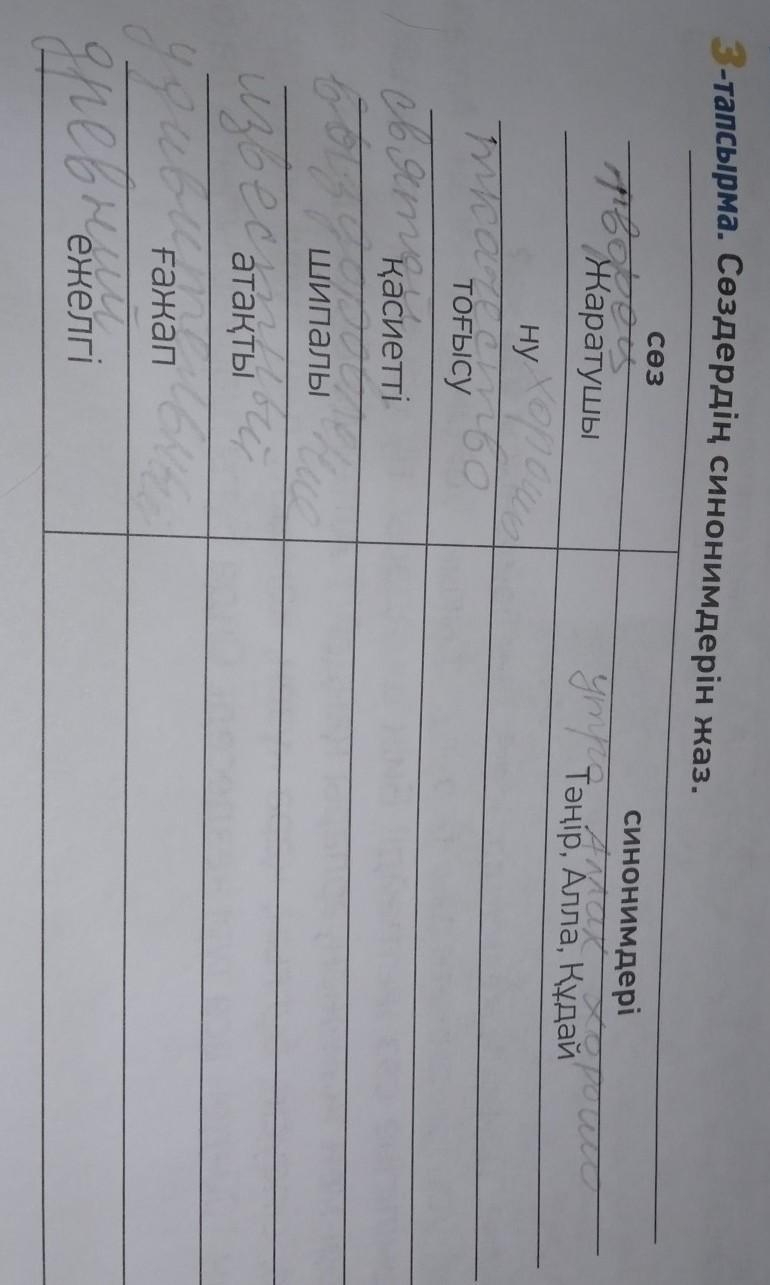 3-тапсырма. Сөздердің синонимдерін жаз.
сөз синонимдері
творец утро Аллах хорошо
Жаратушы Тәңір, Алла, Құдай
ну хорошо
ткачество
тоғысу
святой
қасиетті
шипалы
известный
атақты
удивительный
ғажап
древний
ежелгі